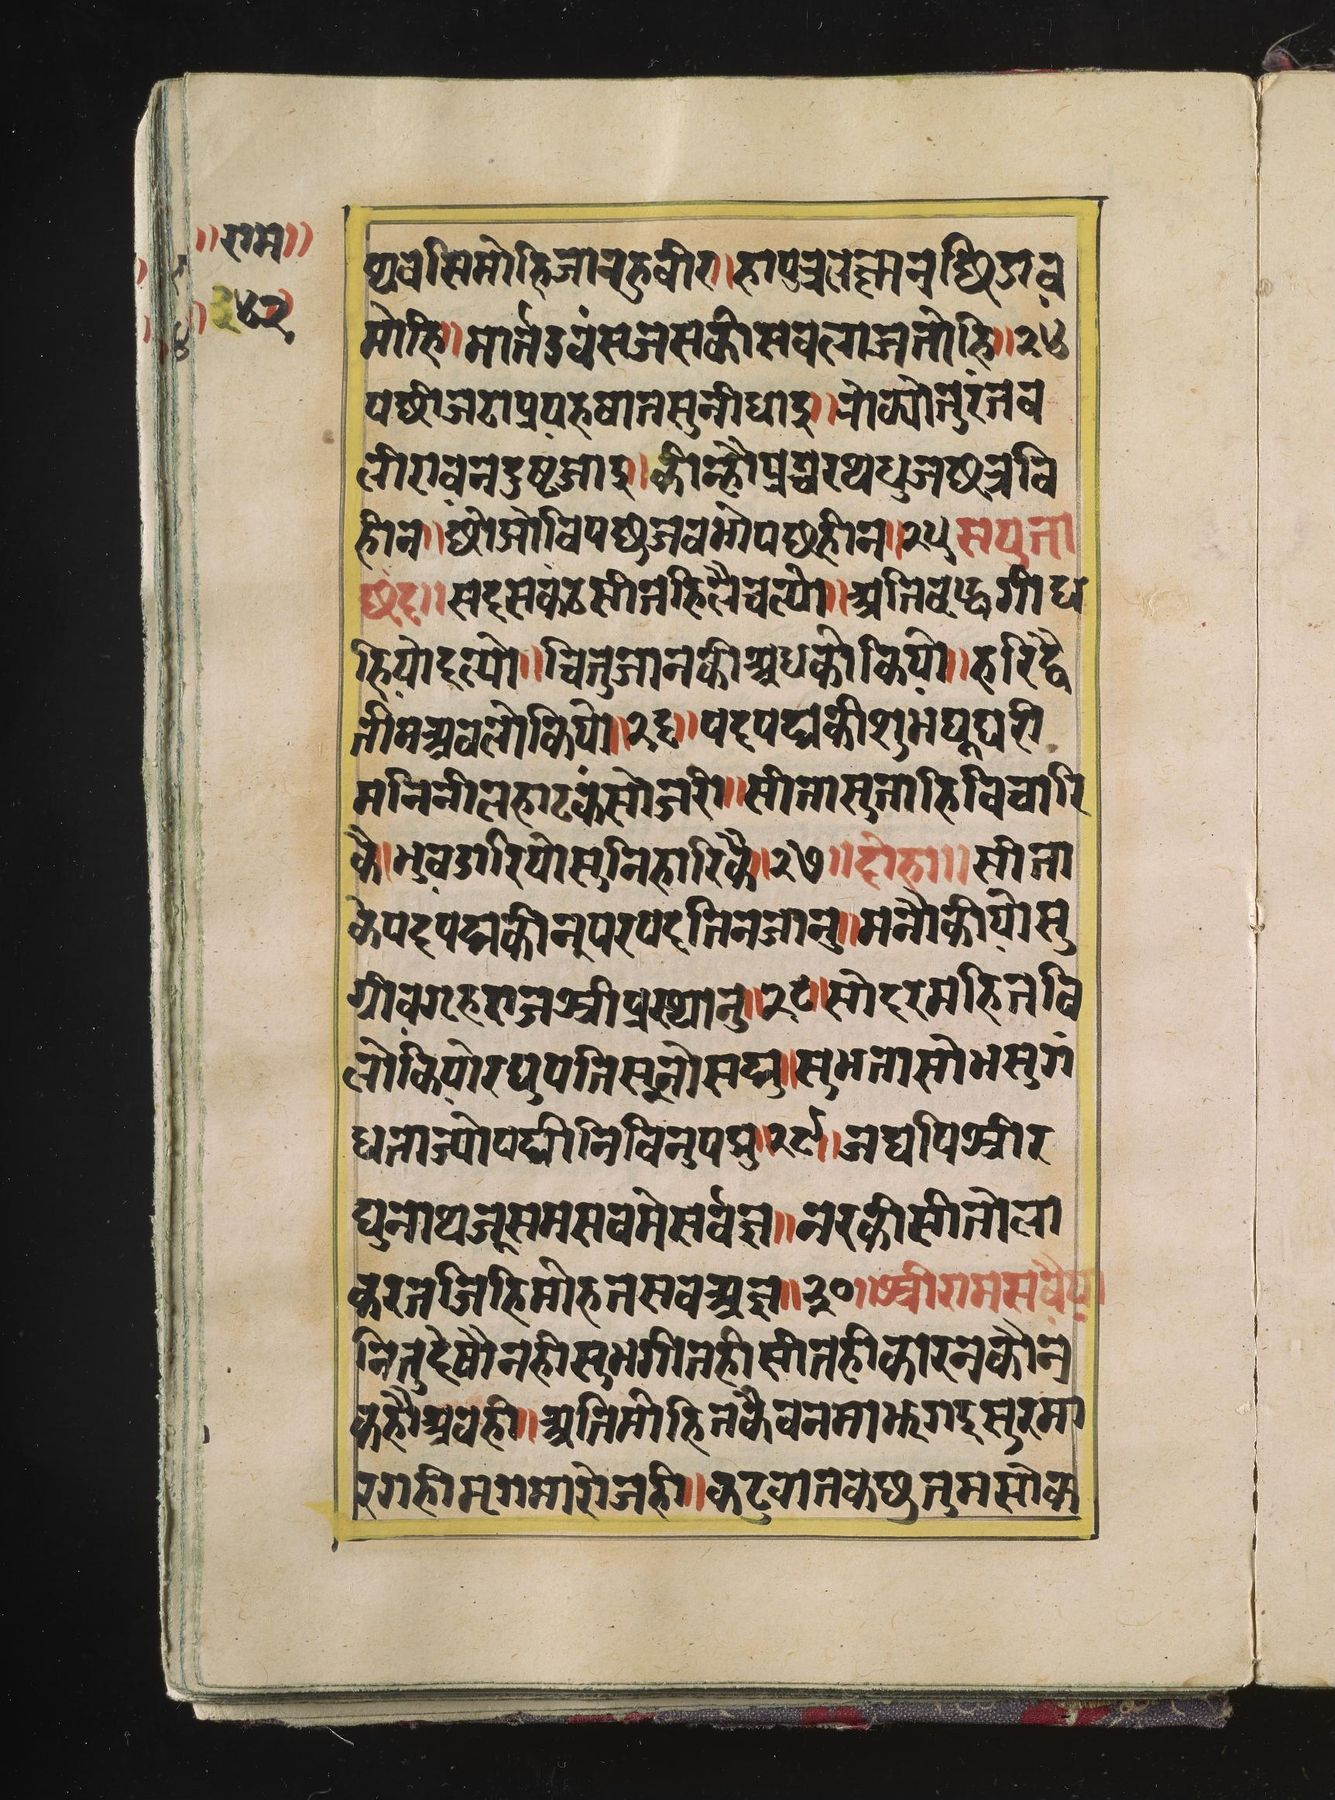 ॥राम॥
२४२
ष्यवसिमोहिजानुहुवीर॥हापुत्रलछमनछिडाव
मोहि॥मार्तंडवंसजसकीसवलाजतोहि॥२४
पछीजटाप्रपहषातसुनीधाइ॥रोक्योतुरंतव
लीरावनदुष्टजाइ॥कीन्हौप्रचरथधुजछत्रवि
हीन॥छोजोविपछजवभोपछहीन॥२५संपुता
छंद॥सदसकठसीतहिलैचल्यो॥अतिवृद्धगीध
हियोदल्यो॥चितुजानकीअधकोकियो॥हरिद्वै
तीमअवलोकियो॥२६॥पदपद्मकीशुभघूघरी
मनिनीलहाटकसोजरी॥सीतासुताहिविचारि
कै॥भुवडारियोसुनिहारिकै॥२७॥दोहा॥सीता
केपदपद्मकीनूपरपदजिनजानु॥मनौकीयोसु
ग्रीवगहराजश्रीप्रस्थानु॥२८॥सोदरमहितवि
लोकियोरघुपतिसूनोसद्म॥सुभतासोभसुगं
धताज्योपद्मीनिविनुपद्म॥२९॥जद्यपिश्रीर
घुनाथजूसमसवमेसर्वज्ञ॥नरकीसीलीला
करतजिहिमोहतसवअज्ञ॥३०॥श्रीरामसवैया
नितुदेषौनहीसुभगीतहीसीतहीकारनकौन
कहौअवही॥अतिमोहितकैवनमाझगइसुरमा
रगहीमृगमारोजही॥कटुवातकछुतुमसोक